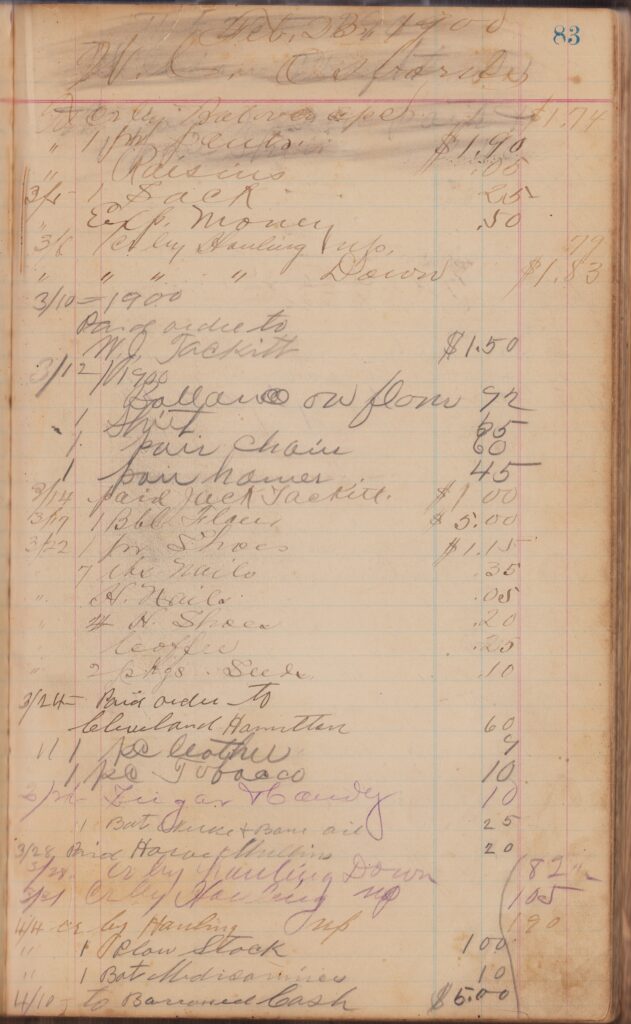 83
Feb, 23, 1900
W. C.
Cr by
$1.74
" 1 pr pants. $1.90
" Raisins .05
3/5 1 Sack 25
" Exp. Money .50
3/6 Cr by Hauling up. 79
" " " " Down $1.83
3/10 - 1900
Paid order to
W. J. Tackitt $1.50
3/12 / 1900
Ballance on flour 92
1 Shirt 65
1 pair chain 60
1 pair hames 45
3/14 paid Jack Tackitt. $1 00
3/17 1 Bbl $5.00
3/22 1 pr Shoes $1.15
7 lbs Nails .35
" H. Nails .05
" 4 H. Shoes .20
Coffee .25
" 2 pkgs. Seeds .10
3/24 - Paid order to
Cleveland Hamilton 60
11 1 pc leather 9
1 pc Tobacco 10
Sugar & Candy 10
1 Bot & Bone oil 25
3/28 Paid Harve Mullins 20
3/28 Cr by Hauling Down 82
Cr by Hauling up 105
4/4 Cr by Hauling up 190
" 1 Plow Stock 100
" 1 Bot 10
4/10 to Barrowed Cash $5.00